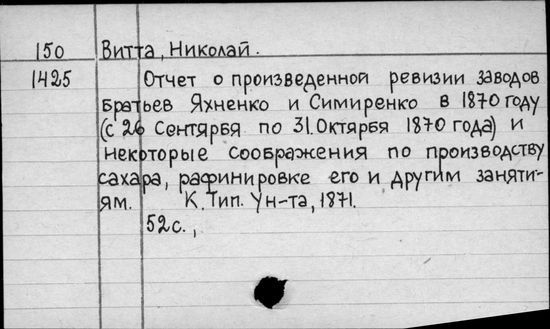 150 Витта, Николай.
1425 Отчет о произведенной ревизии заводов
Братьев Яхненко и Симиренко в 1870 году
(с 26 Сентярбя по 31. Октярбя 1870 года) и
некоторые соображения по производству
сахара, рафинировке его и другим заняти-
ям. К. Тип. Ун-та, 1871.
52 с.,